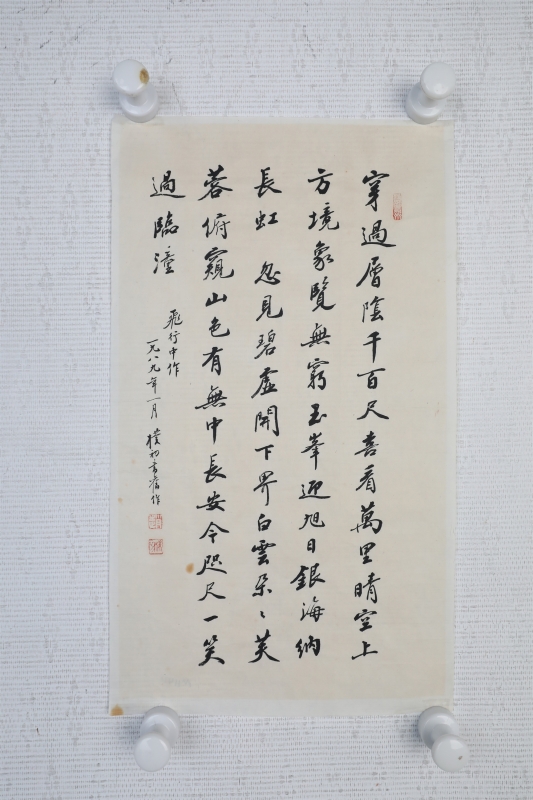 穿過層陰千百尺喜看萬里晴空上
方境象覽無窮玉峯迎旭日銀海納
長虹 忽見碧虛開下界白雲朵〻芙
蓉俯窺山色有無中長安今咫尺一笑
過臨潼
飛行中作
一九八九年一月 樸初書舊作